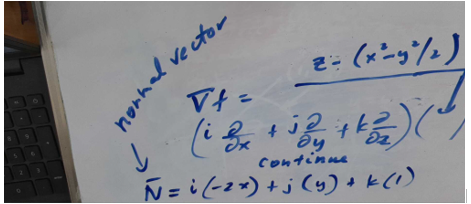 normal vector
z - (x²-y²/2)
∇f =
(i ∂/∂x + j ∂/∂y + k ∂/∂z) ( )
continue
N̄ = i(-2x) + j(y) + k(1)